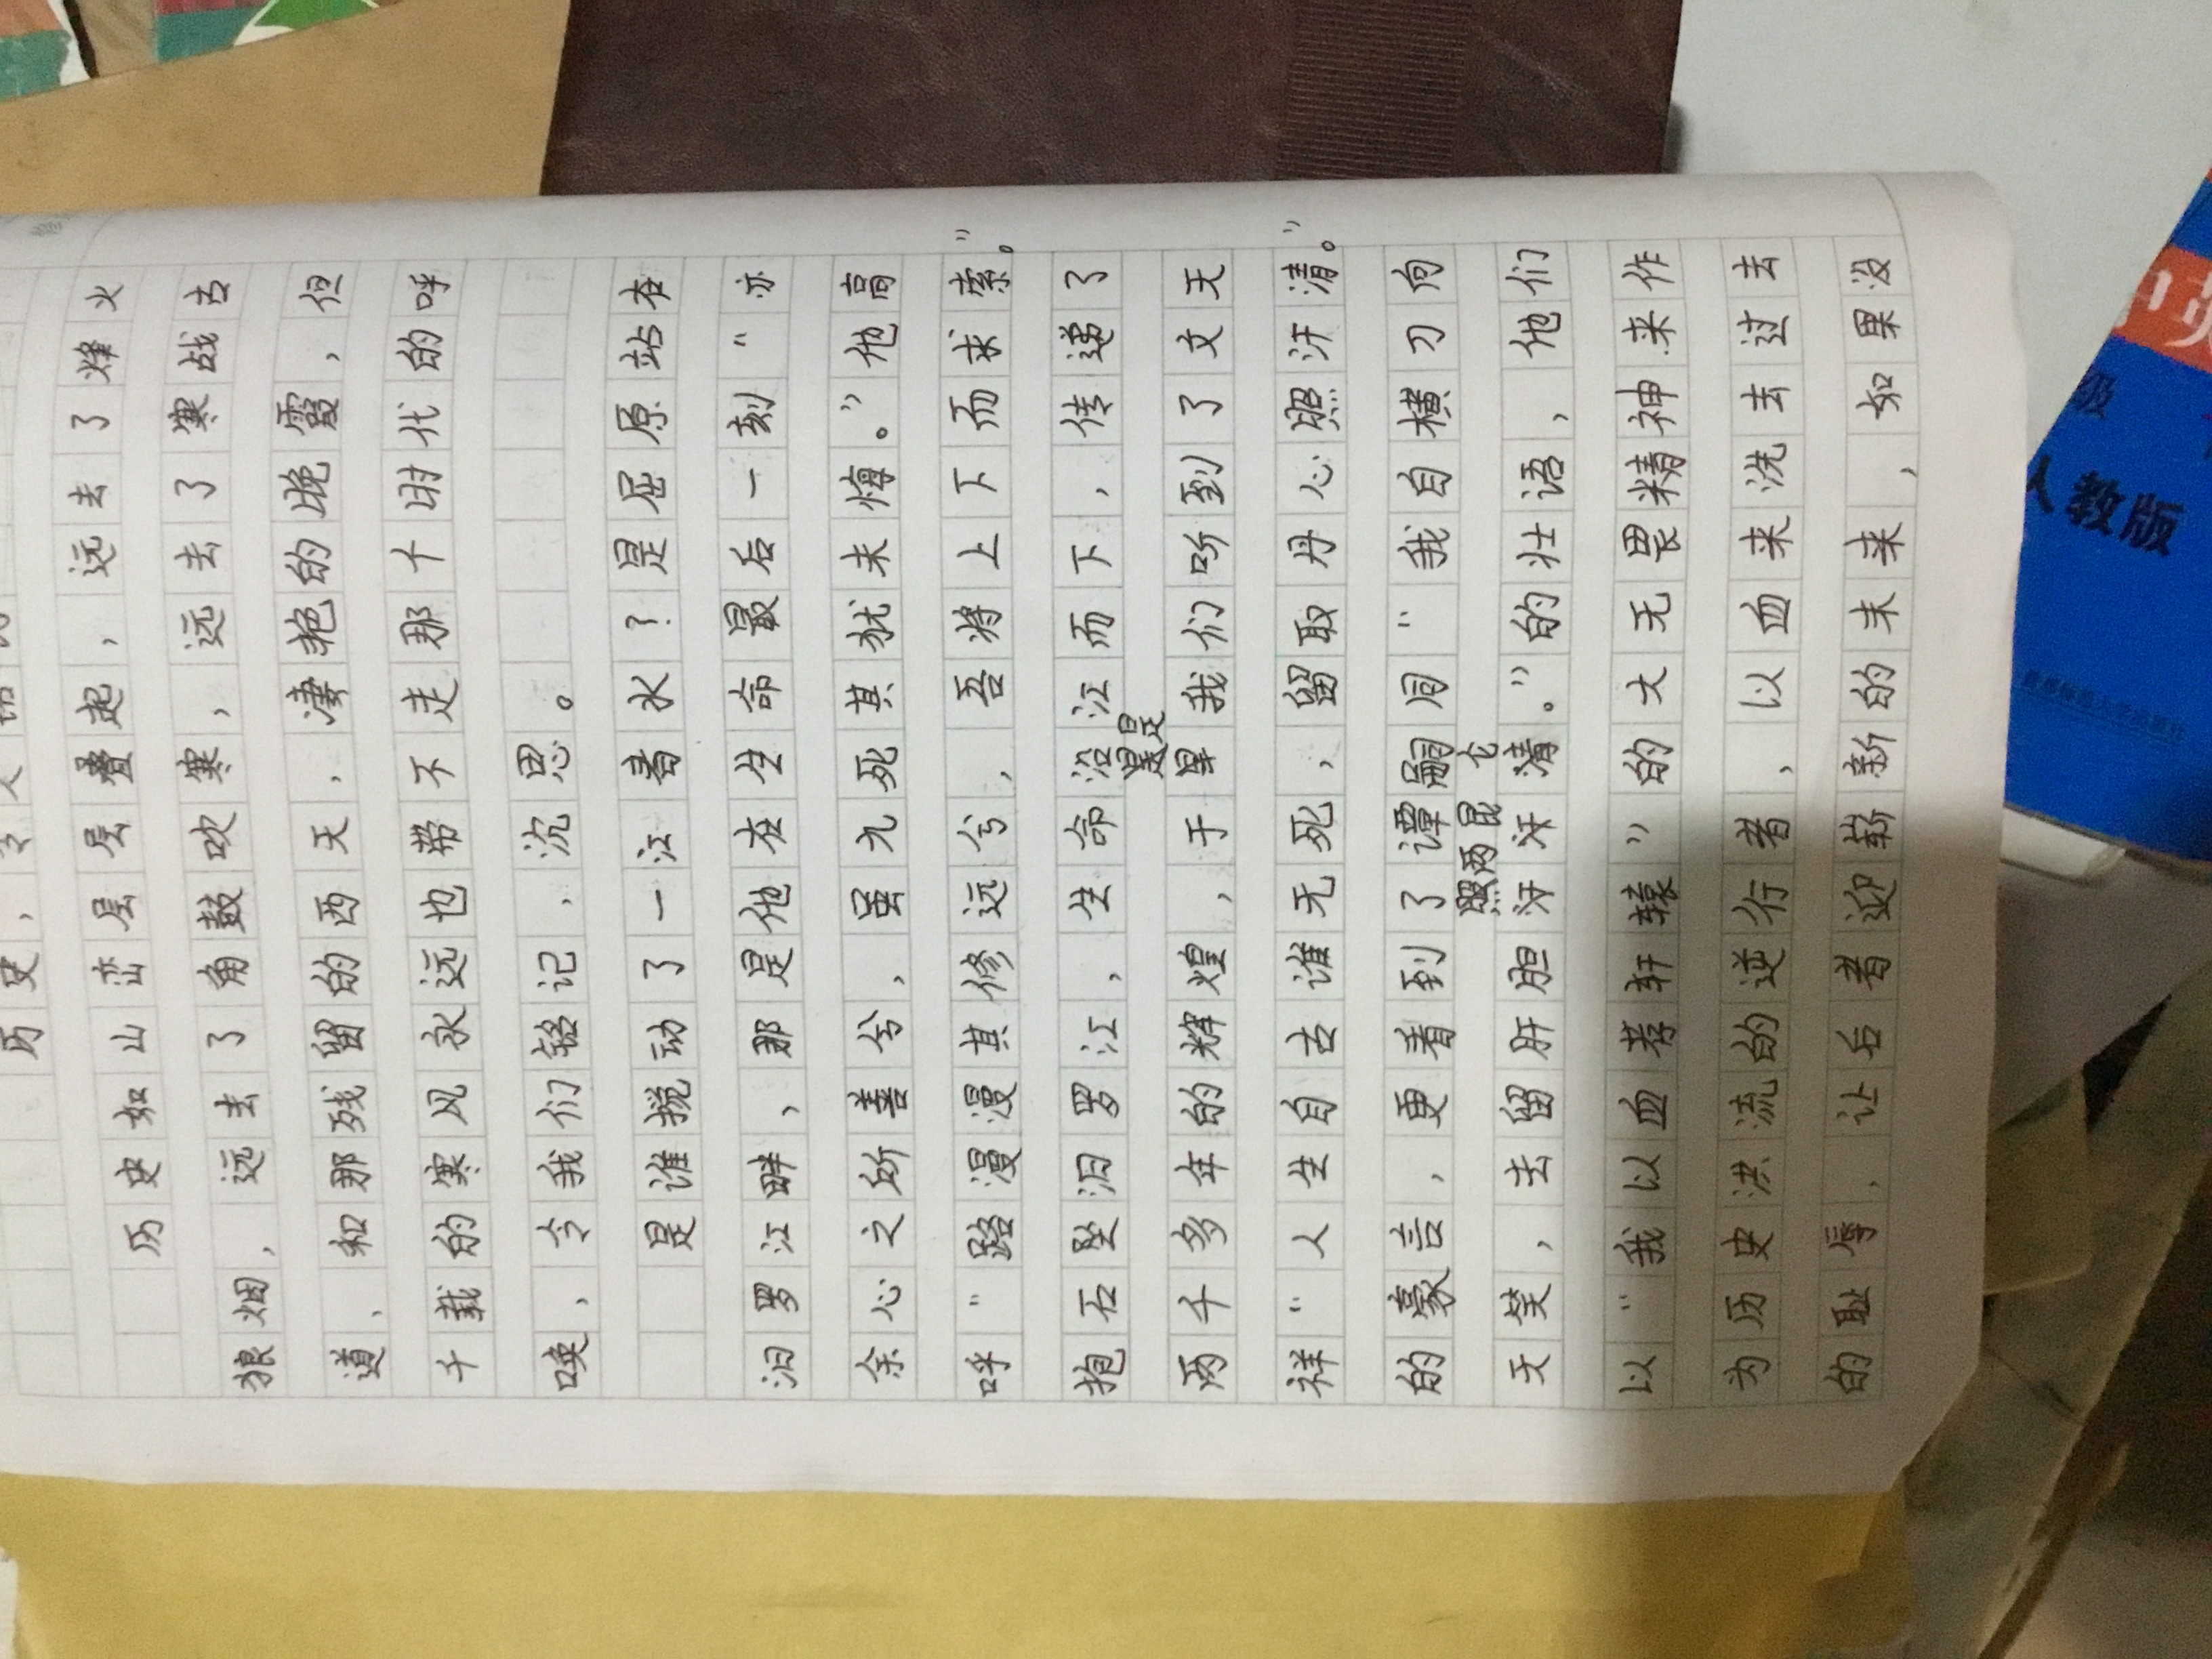 历史，
历史如山峦层层叠起，远去了烽火
狼烟，远去了角鼓吹寒，远去了寒战古
道，和那残留的西天，凄艳的晚霞，但
千载的寒风永远也带不走那个时代的呼
唤，令我们铭记，沉思。
是谁搅动了一江春水？是屈原站在
汨罗江畔，那是他在生命最后一刻“亦
余心之所善兮，虽九死其犹未悔。”他高
呼“路漫漫其修远兮，吾将上下而求索”。
抱石坠汨罗江，生命沿江而下，传递了
两千多年的辉煌，于是我们听到了文天
祥“人生自古谁无死，留取丹心照汗清”。
的豪言，更看到了谭嗣同“我自横刀向
天笑，去留肝胆两昆仑。”的壮语，他们
以“我以血荐轩辕”的大无畏精神来作
为历史洪流的逆行者，以血来洗去过去
的耻辱，让后者迎崭新的未来，如果没
人教版
级